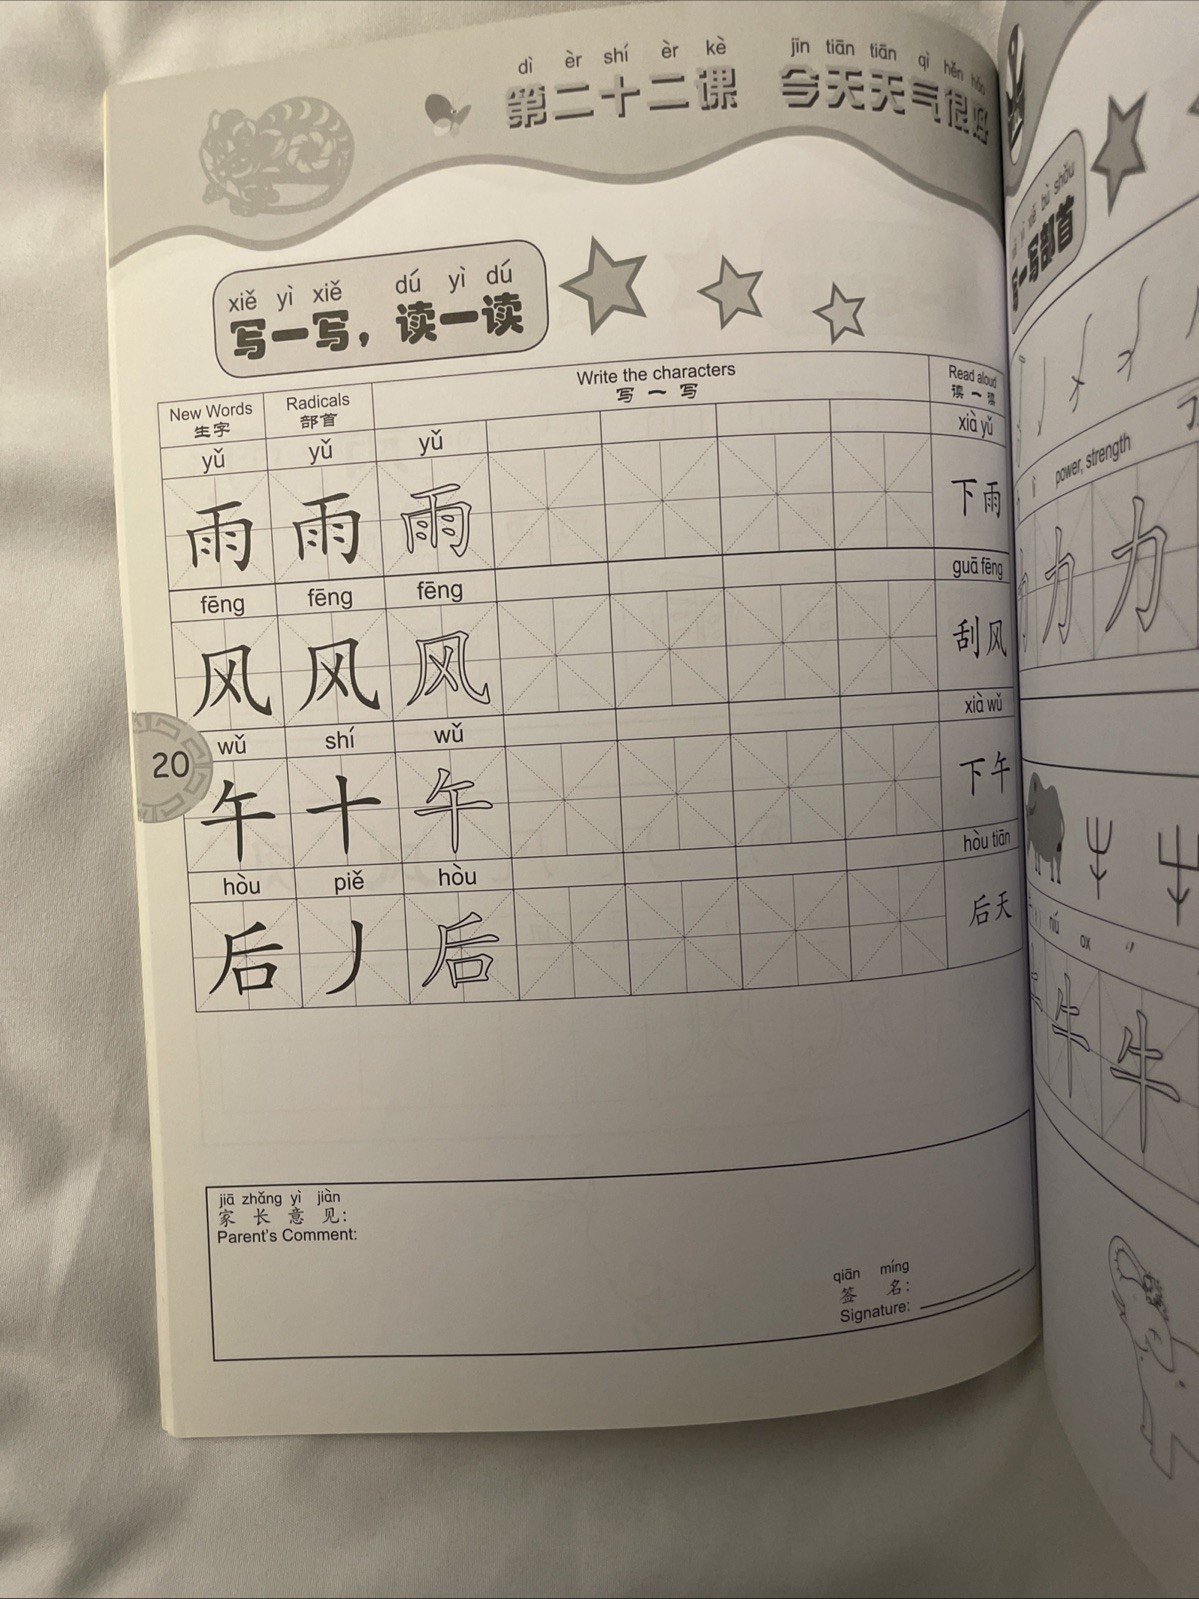 dì èr shí èr kè jīn tiān tiān qì hěn hǎo
第二十二课 今天天气很好
xiě yì xiě dú yì dú
写一写，读一读
New Words
生字
Radicals
部首
Write the characters
写一写
Read aloud
读一读
yǔ yǔ yǔ xià yǔ
雨 雨 雨 下雨
fēng fēng fēng guā fēng
风 风 风 刮风
wǔ shí wǔ xià wǔ
午 十 午 下午
hòu piě hòu hòu tiān
后 丿 后 后天
20
jiā zhǎng yì jiàn
家长意见：
Parent's Comment:
qiān míng
签名：
Signature:
xiě bù shǒu
写一写部首
power, strength
力 力
niú ox
牛 牛